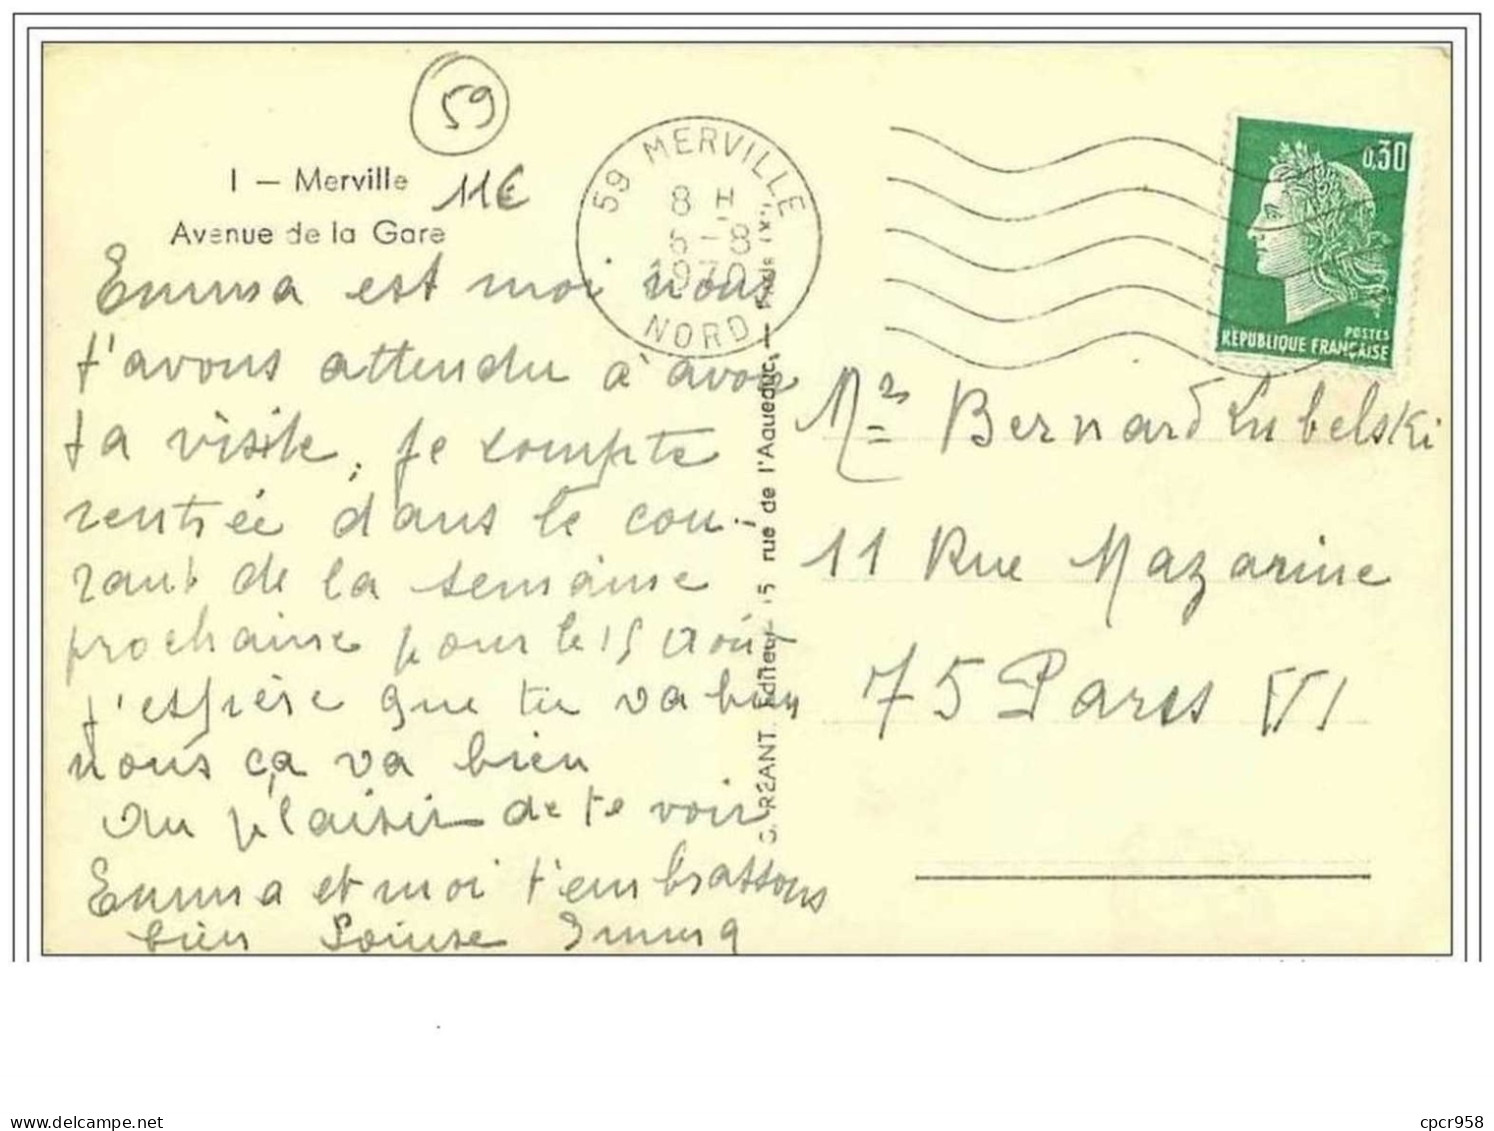 59
1 — Merville
11€
Avenue de la Gare
59 MERVILLE
8 H
6-8
1970
NORD
0,30
POSTES
RÉPUBLIQUE FRANÇAISE
Emma est moi nous
t'avons attendu à avoir
ta visite, je compte
rentrée dans le cou
rant de la semaine
prochaine pour le 15 Août
j'espère que tu va bien
nous ça va bien
Au plaisir de te voir
Emma et moi t'embrassons
bien Louise Emma
GRÉANT, Éditeur 15 rue de l'Aqueduc, — Paris
Mr Bernard Lubelski
11 Rue Mazarine
75 Paris VI
cpcr958